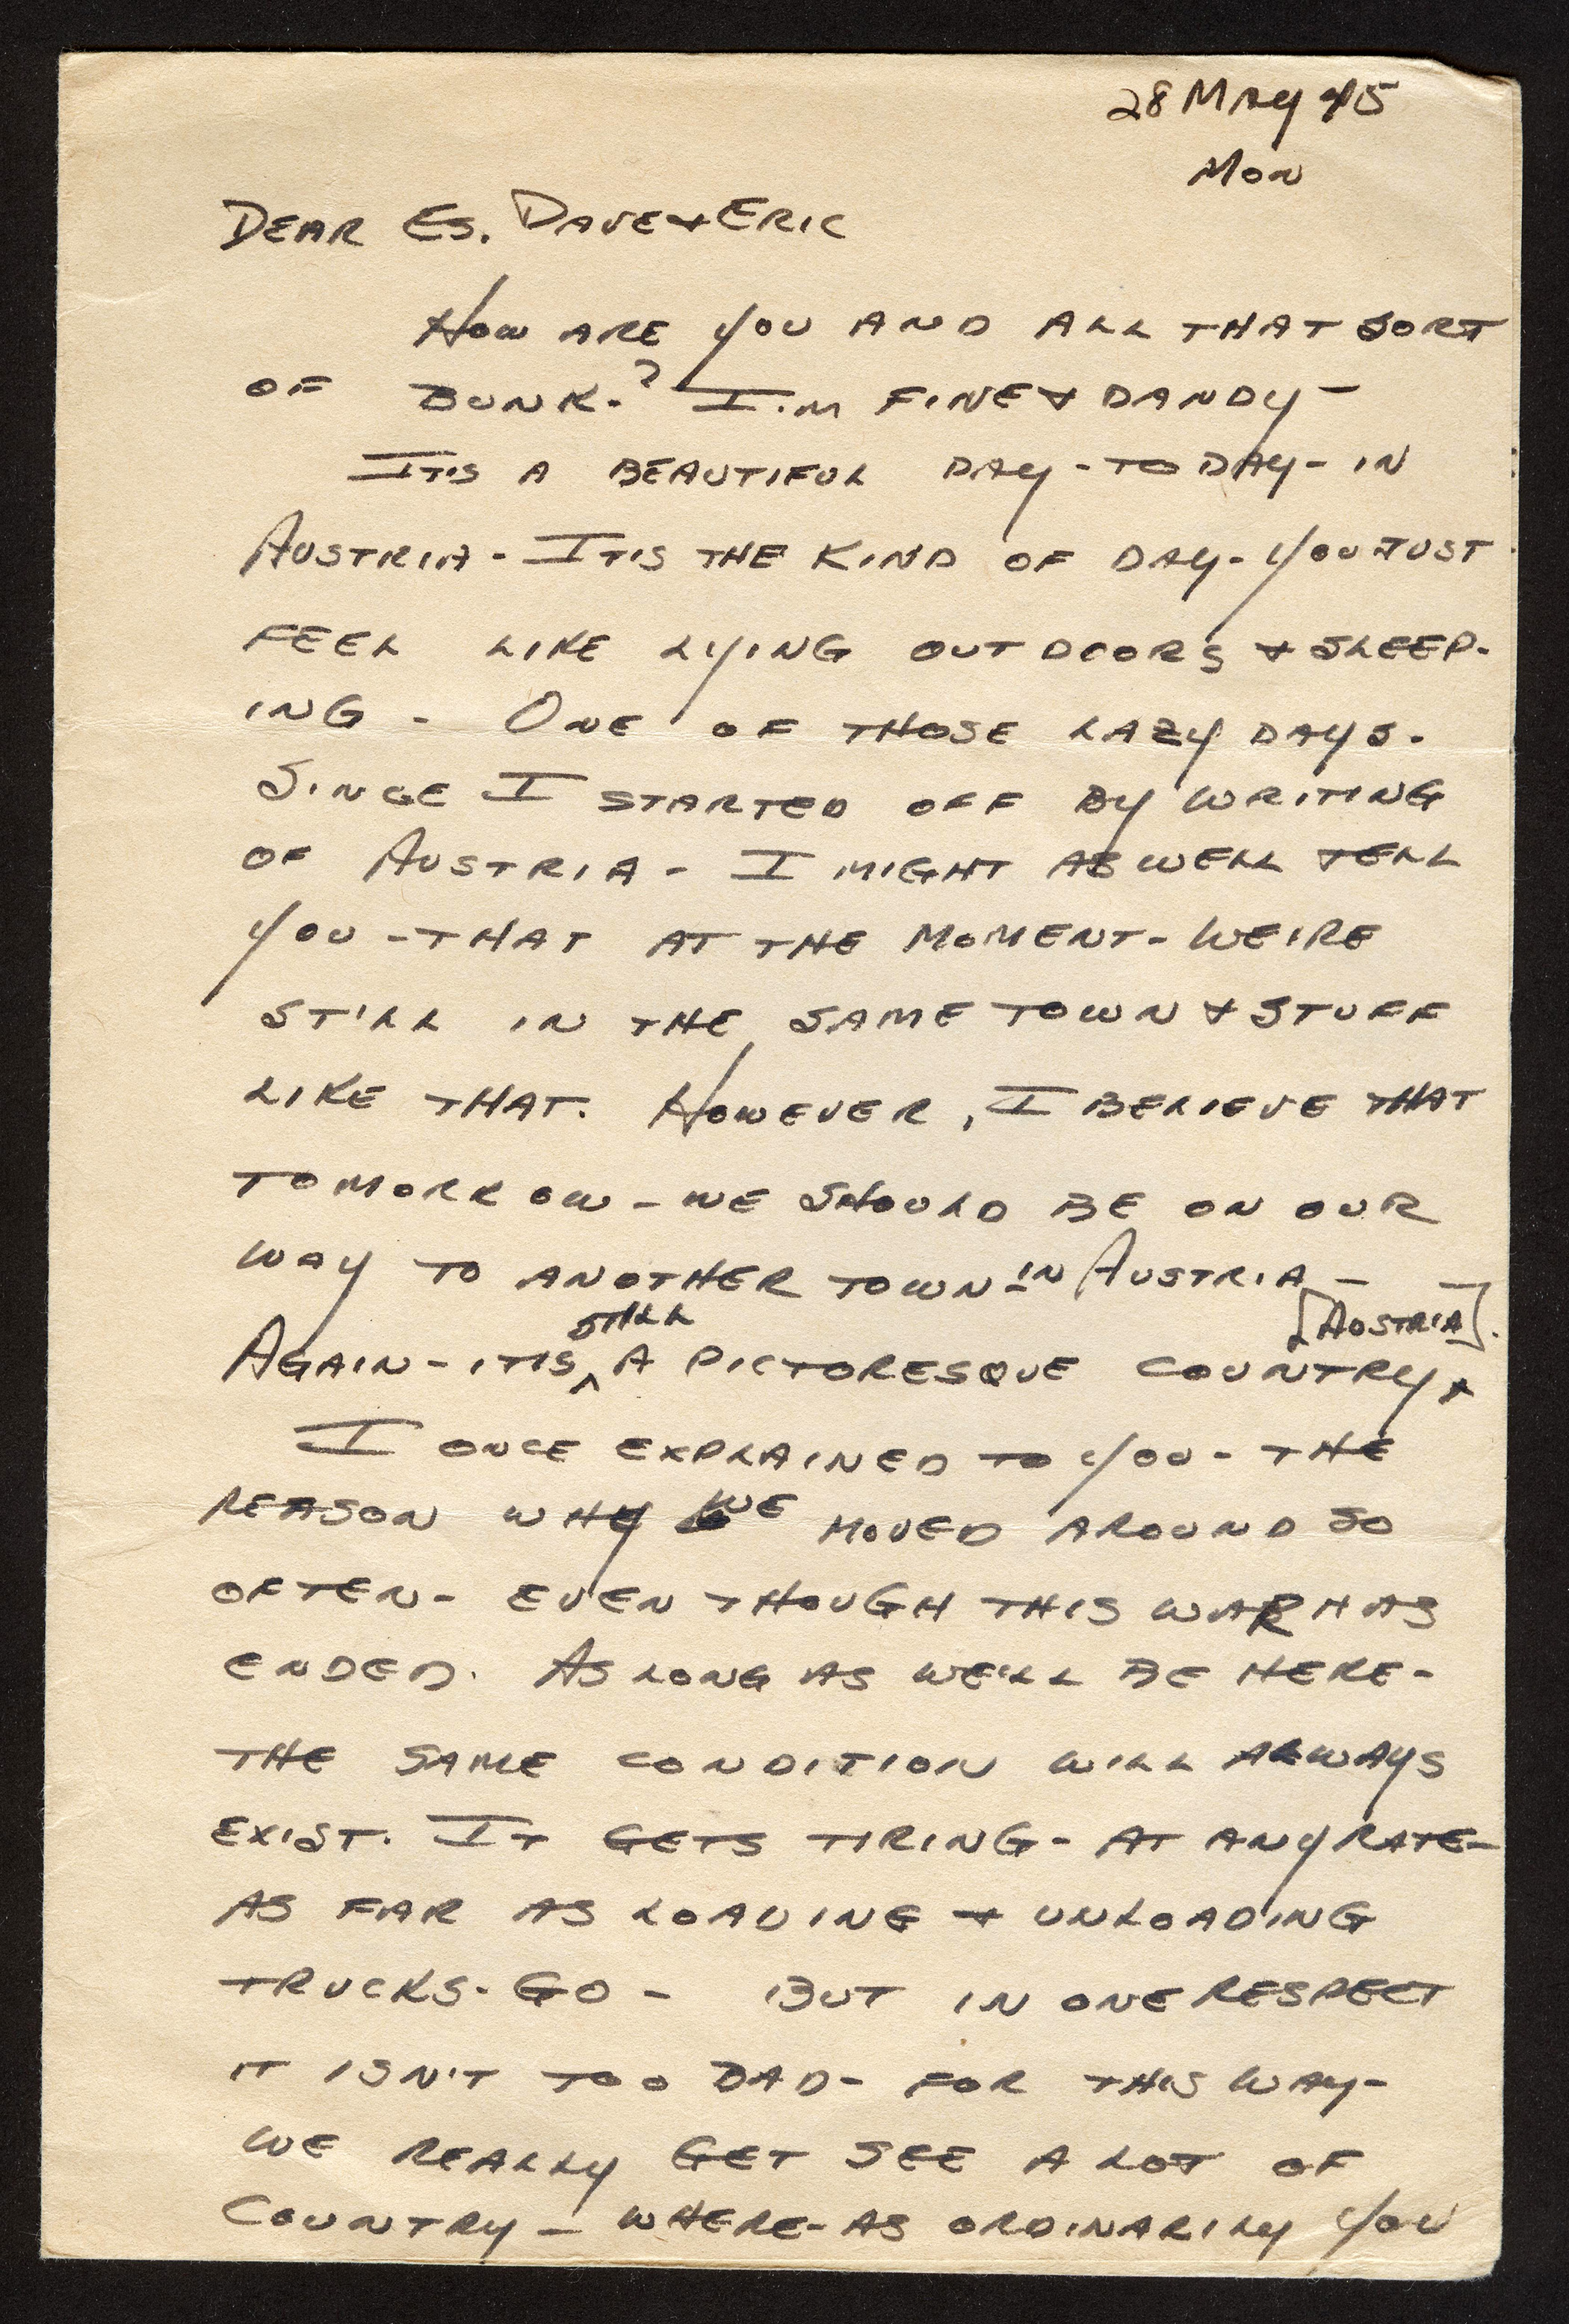 28 MAY 45
MON
DEAR ES. DAVE & ERIC
HOW ARE YOU AND ALL THAT SORT
OF BUNK.? I'M FINE & DANDY -
IT'S A BEAUTIFUL DAY - TODAY - IN
AUSTRIA - IT'S THE KIND OF DAY - YOU JUST
FEEL LIKE LYING OUTDOORS & SLEEP-
ING - ONE OF THOSE LAZY DAYS.
SINCE I STARTED OFF BY WRITING
OF AUSTRIA - I MIGHT AS WELL TELL
YOU - THAT AT THE MOMENT - WE'RE
STILL IN THE SAME TOWN & STUFF
LIKE THAT. HOWEVER, I BELIEVE THAT
TOMORROW - WE SHOULD BE ON OUR
WAY TO ANOTHER TOWN IN AUSTRIA -
AGAIN - IT'S ^STILL A PICTORESQUE COUNTRY [AUSTRIA].
I ONCE EXPLAINED TO YOU - THE
REASON WHY WE MOVED AROUND SO
OFTEN - EVEN THOUGH THIS WAR HAS
ENDED. AS LONG AS WE'LL BE HERE -
THE SAME CONDITION WILL ALWAYS
EXIST. IT GETS TIRING - AT ANY RATE -
AS FAR AS LOADING & UNLOADING
TRUCKS - GO - BUT IN ONE RESPECT
IT ISN'T TOO BAD - FOR THIS WAY -
WE REALLY GET SEE A LOT OF
COUNTRY - WHERE-AS ORDINARILY YOU